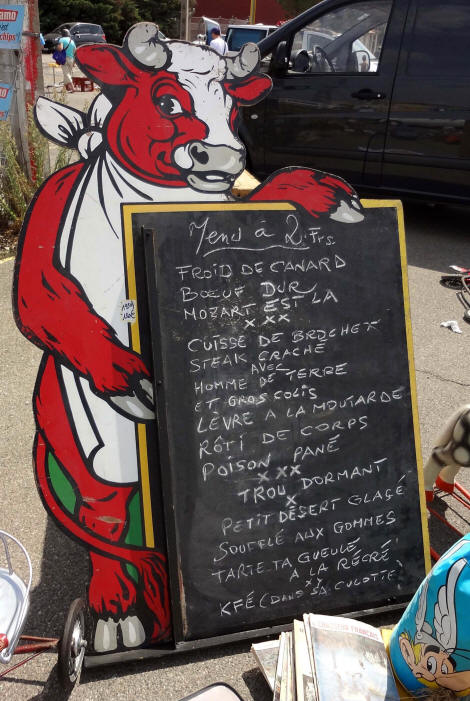 Menu à 2 Frs
FROID DE CANARD
BŒUF DUR
MOZART EST LÀ
x x x
CUISSE DE BROCHET
STEAK CRACHÉ
AVEC
HOMME DE TERRE
ET GROS COLIS
LÈVRE A LA MOUTARDE
RÔTI DE CORPS
POISON PANÉ
x x x
TROU DORMANT
x
PETIT DÉSERT GLAÇÉ
SOUFFLÉ AUX GOMMES
TARTE.TA GUEULE
A LA RÉCRÉ
x x
KFÉ (DANS SA CULOTTE)